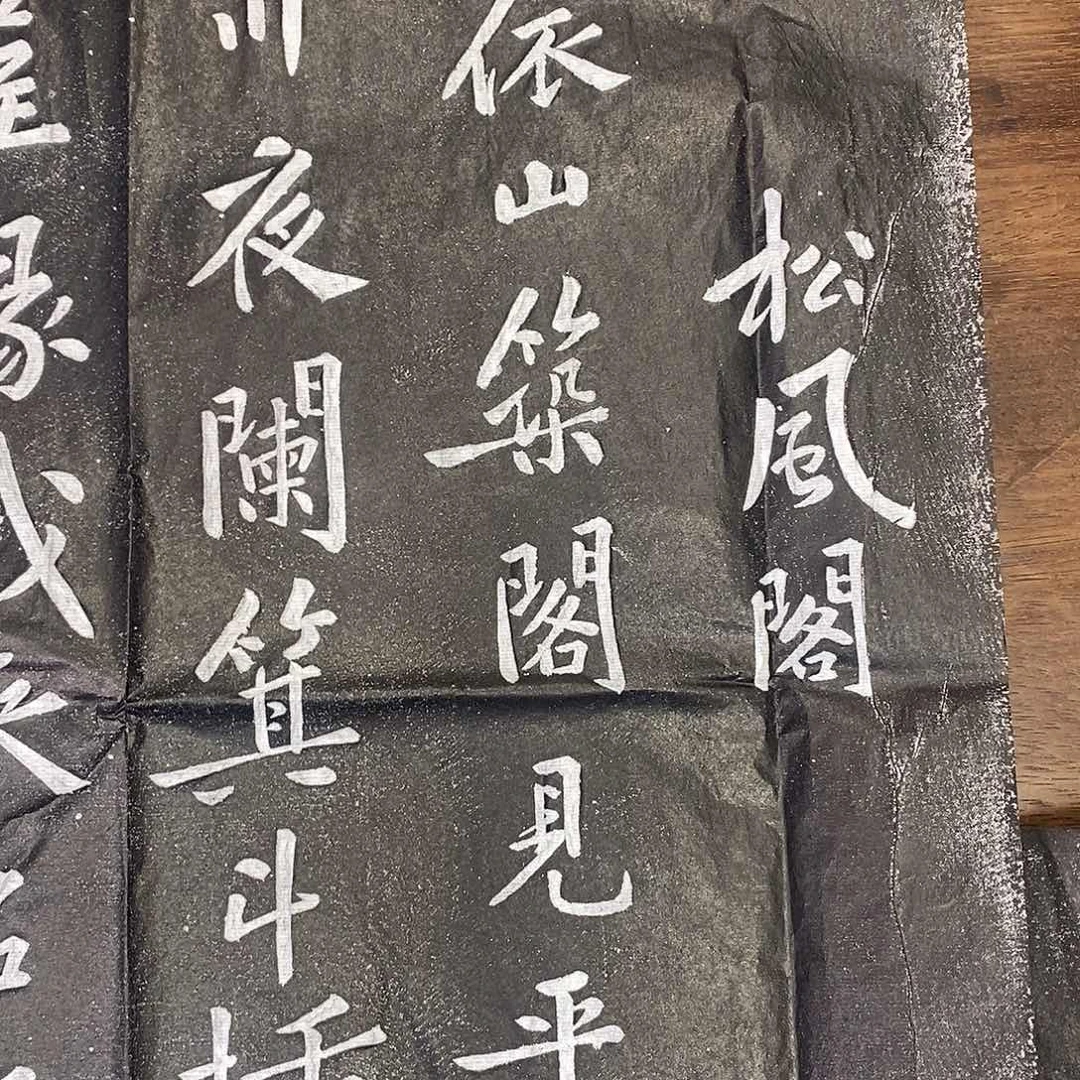 松風閣
依山築閣見平
川夜闌箕斗